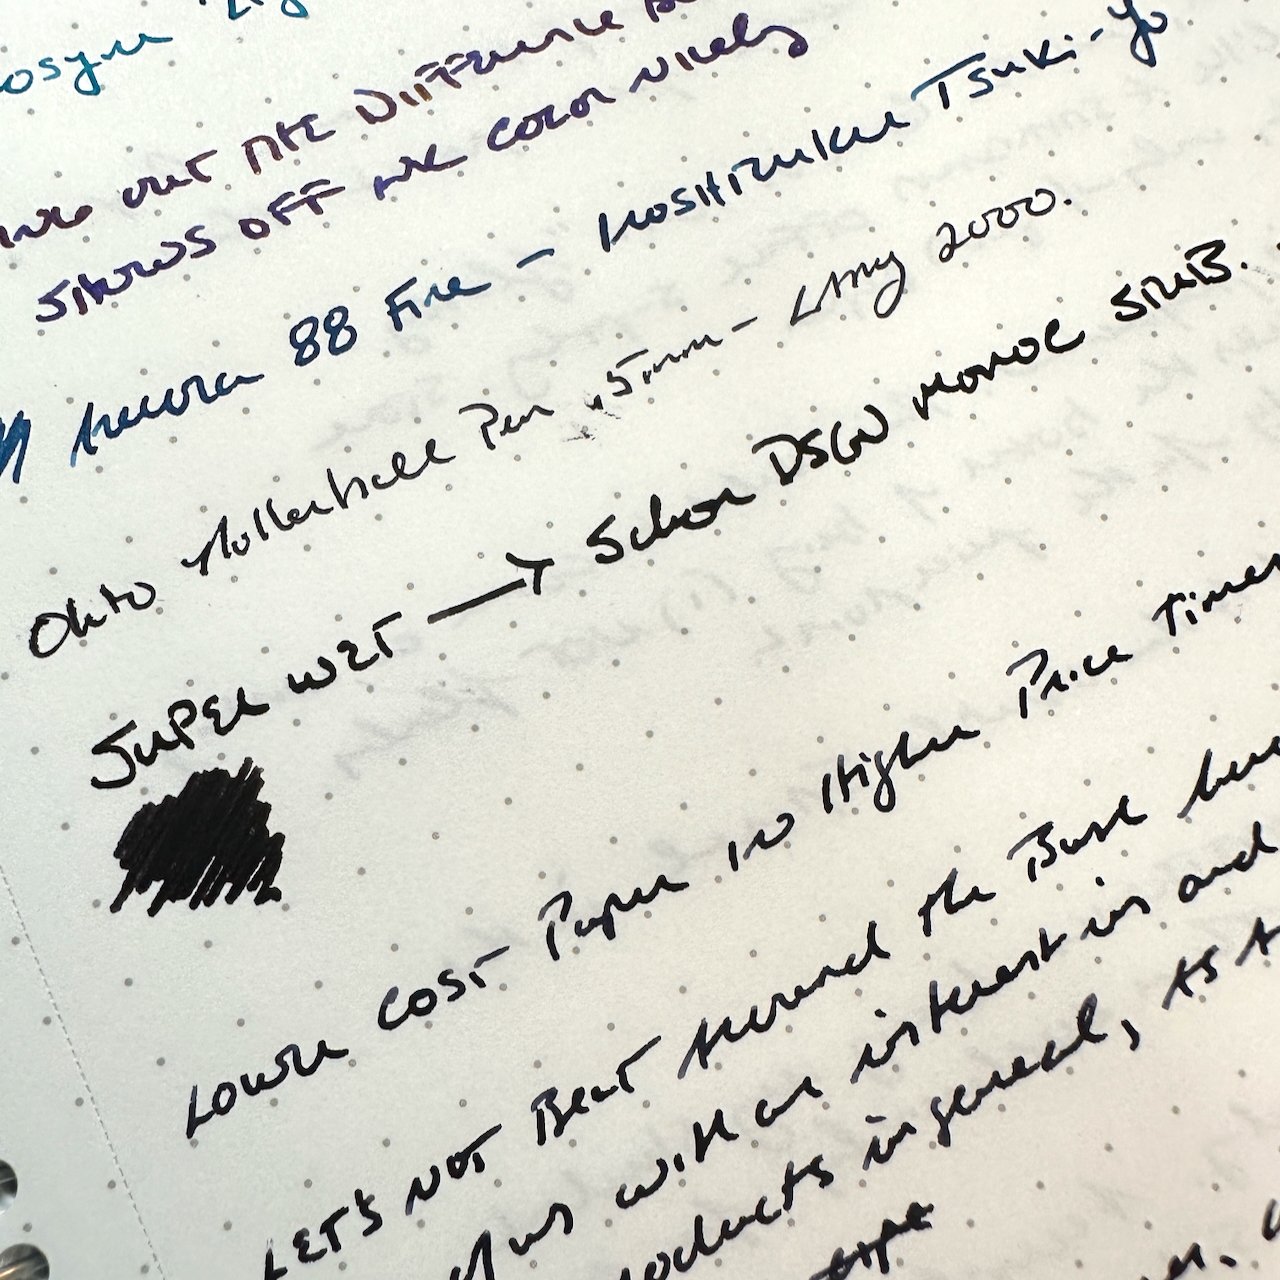 out the Difference
shows off ink color nicely
Aurora 88 Fine - Iroshizuku Tsuki-yo
Ohto Rollerball Pen .5mm - Lamy 2000.
Super wet → Schon DSGN Monoc Stub.
Lower cost Paper in Higher Price Times
Let's not Beat Around the Bush
of us with an interest in and
products in general, As